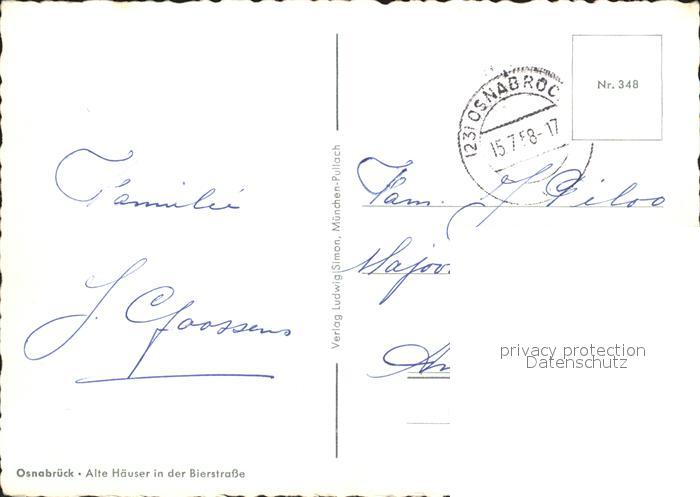 Familie
J. Goossens
Osnabrück • Alte Häuser in der Bierstraße
Verlag Ludwig Simon, München-Pullach
(23) OSNABRÜC
15.7.58-17
Nr. 348
Fam.
Major.
privacy protection
Datenschutz